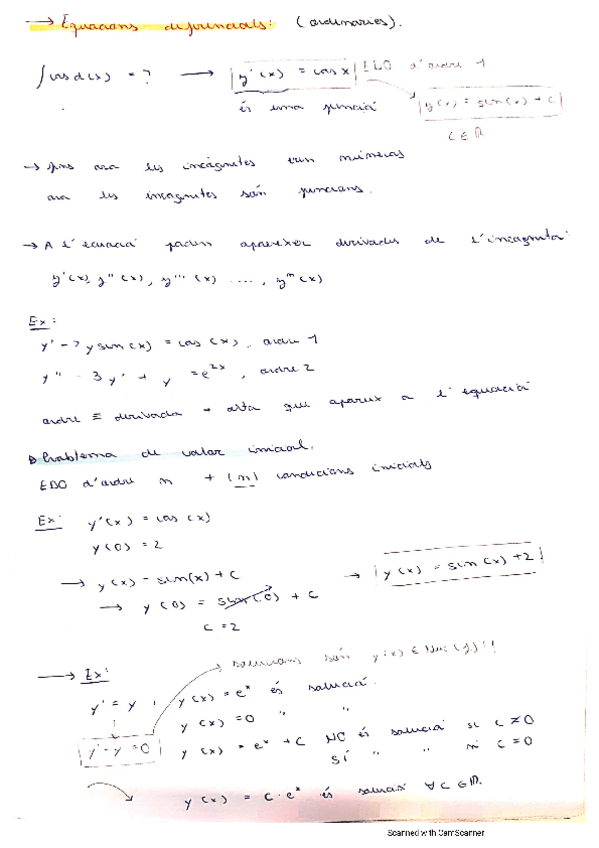 → Equacions diferencials: (ordinàries).
∫cos d(x) = ? → y'(x) = cos x EDO d'ordre 1
és una funció y(x) = sin(x) + C
C ∈ ℝ
→ fins ara les incògnites eren números
ara les incògnites són funcions.
→ A l'equació poden aparèixer derivades de l'incògnita:
y'(x), y''(x), y'''(x) ...., yⁿ(x)
Ex:
y' - 7y sin(x) = cos(x), ordre 1
y'' - 3y' + y = e²ˣ, ordre 2
ordre ≡ derivada + alta que apareix a l'equació
Problema de valor inicial.
EDO d'ordre n + (n) condicions inicials
Ex: y'(x) = cos(x)
y(0) = 2
→ y(x) = sin(x) + C → y(x) = sin(x) + 2
→ y(0) = sin(0) + C
C = 2
→ solucions són y(x) ∈ Nuc(f)!!
→ Ex:
y' = y, y(x) = eˣ és solució.
y(x) = 0 " "
y' - y = 0 y(x) = eˣ + C NO és solució si C ≠ 0
SÍ " " si C = 0
y(x) = C · eˣ és solució ∀C ∈ ℝ.
Scanned with CamScanner